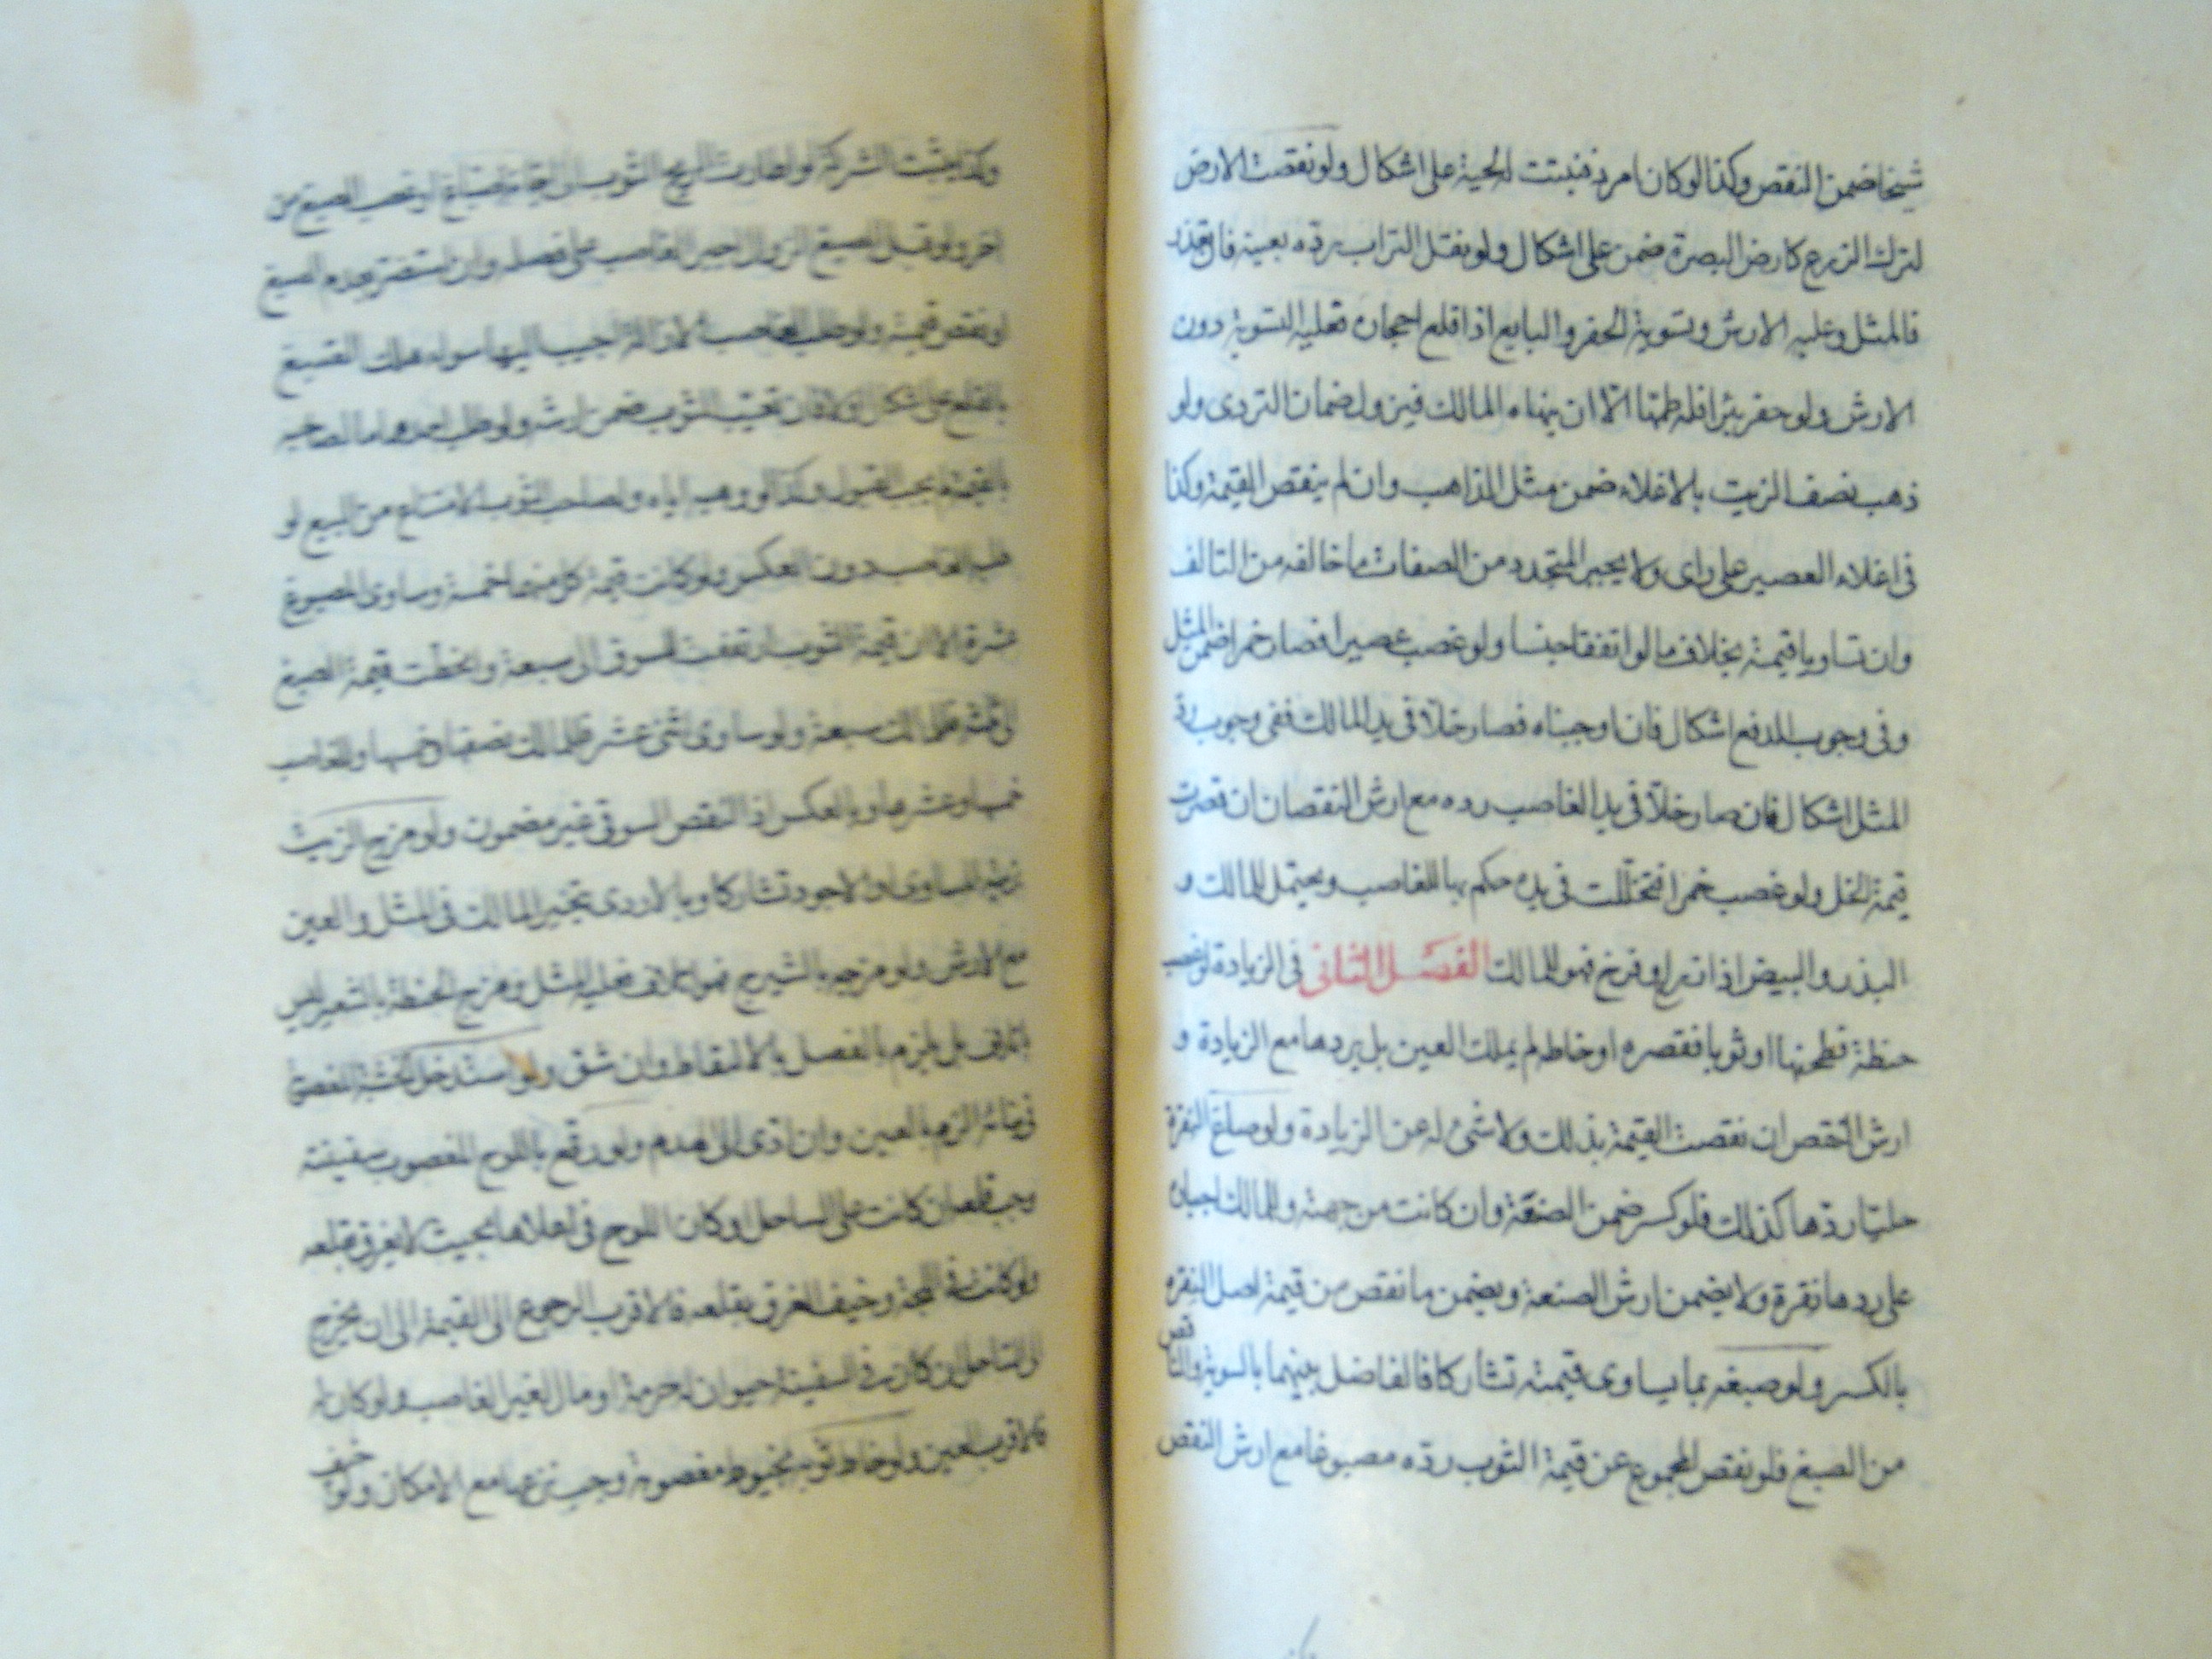 شيخا ضمن النقص وكذا لو كان امرد فنبتت لحيته على اشكال ولو نقصت الارض
لترك الزرع كارض البصرة ضمن على اشكال ولو نقل التراب رده بعينه فان تعذر
فالمثل وعليه الارش وتسوية الحفر والبايع اذا قلع احجاره فعليه التسوية دون
الارش ولو حفر بئرا فله طمها الا ان ينهاه المالك فيزول ضمان التردى ولو
ذهب نصف الزيت بالاغلاء ضمن مثل الذاهب وان لم ينقص القيمة وكذا
فى اغلاء العصير على راى ولا يجبر المتجدد من الصفات ما خالفه من التالف
وان تساويا قيمة بخلاف ما لو اتفقا جنسا ولو غصب عصيرا فصار خمرا ضمن المثل
وفى وجوب الدفع اشكال فان اوجبناه فصار خلا فى يد المالك ففى وجوب رد
المثل اشكال فان صار خلا فى يد الغاصب رده مع ارش النقصان ان قصرت
قيمة الخل ولو غصب خمرا فتخللت فى يده حكم بها للغاصب ويحتمل المالك و
البذر والبيض اذا زرع او فرخ فهو للمالك الفصل الثانى فى الزيادة لو غصب
حنطة فطحنها او ثوبا فقصره او خاطه لم يملك العين بل يردها مع الزيادة و
ارش النقص ان نقصت القيمة بذلك ولا شئ له عن الزيادة ولو صاغ النقرة
حليا ردها كذلك فلو كسر ضمن الصنعة وان كانت من جهته وللمالك اجباره
على ردها نقرة ولا يضمن ارش الصنعة ويضمن ما نقص من قيمة اصل النقره
بالكسر ولو صبغه بما يساوى قيمته تشاركا فالفاضل بينهما بالسوية والناقص
من الصبغ فلو نقص المجموع عن قيمة الثوب رده مصبوغا مع ارش النقص
وكذا يثبت الشركة لو اطارت الريح الثوب الى اجانة صباغ او غصب الصبغ من
اخر ولو قبل الصبغ الزوال اجبر الغاصب على فصله وان استضر بعدم الصبغ
او نقص قيمته ولو طلب الغاصب الازالة اجيب اليها سواء هلك الصبغ
بالقلع على اشكال او لا فان تعيب الثوب ضمن ارشه ولو طلب احدهما ما لصاحبه
بالقيمة لم يجب القبول وكذا لو وهبه اياه ولصاحب الثوب الامتناع من البيع لو
طلبه الغاصب دون العكس ولو كانت قيمة كل منهما خمسة وساوى المصبوغ
عشرة الا ان قيمة الثوب ارتفعت للسوق الى سبعة وانحطت قيمة الصبغ
الى ثلثة فللمالك سبعة ولو ساوى اثنى عشر فللمالك نصفها وخمسها وللغاصب
خمسها وعشرها وبالعكس اذ النقص السوقى غير مضمون ولو مزج الزيت
بزيته المساوى او الاجود تشاركا وبالاردى يتخير المالك فى المثل والعين
مع الارش ولو مزجه بالشيرج فهو اتلاف فعليه المثل ومزج الحنطة بالشعير ليس
باتلاف بل يلزم بالفصل بالالتقاط وان شق ولو استدخل الخشبة المغصوبة
فى بنائه الزم بالعين وان ادى الى الهدم ولو رقع باللوح المغصوب سفينة
وجب قلعه ان كانت على الساحل او كان اللوح فى اعلاها بحيث لا يغرق بقلعه
ولو كانت فى اللجة وخيف الغرق بقلعه فالاقرب الرجوع الى القيمة الى ان يخرج
الى الساحل ان كان فى السفينة حيوان له حرمة او مال لغير الغاصب ولو كان له
فالاقرب العين ولو خاط ثوبه بخيوط مغصوبة وجب نزعها مع الامكان ولو خيف